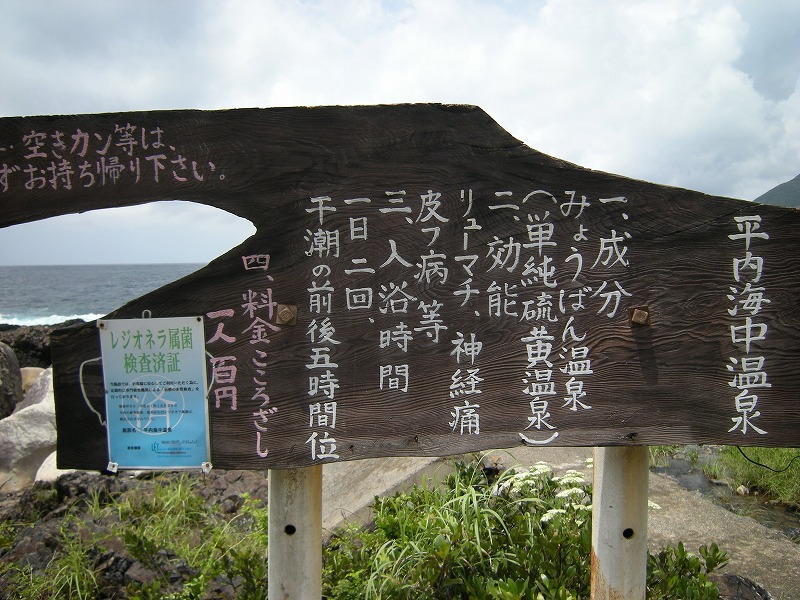 平内海中温泉
一、成分
みょうばん温泉
(単純硫黄温泉)
二、効能
リューマチ、神経痛
皮フ病等
三、入浴時間
一日二回、
干潮の前後五時間位
四、料金こころざし
一人百円
空きカン等は、
ずお持ち帰り下さい。
レジオネラ属菌
検査済証